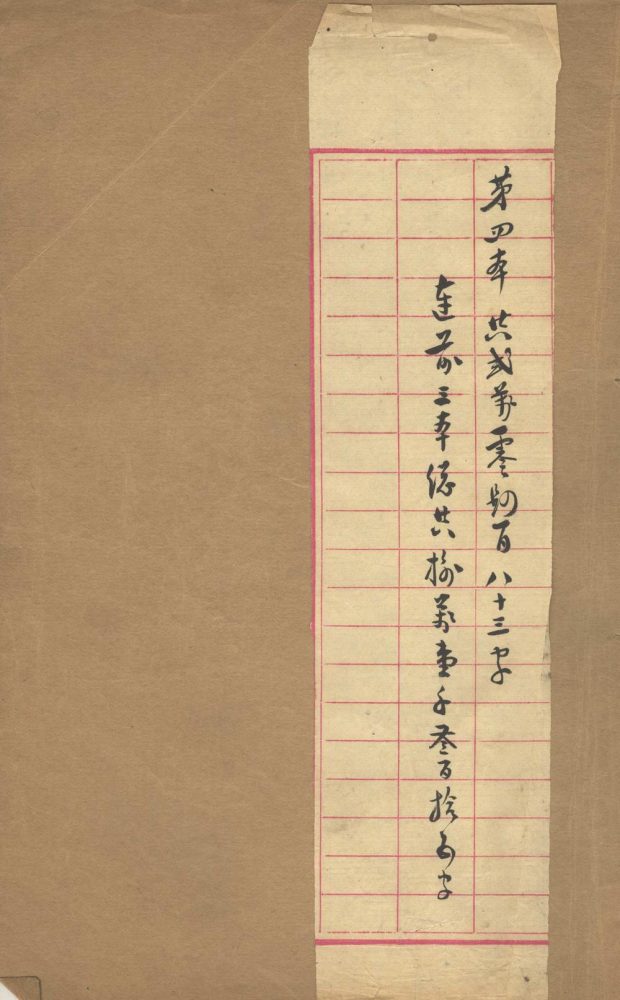 第四本 共弍萬零肆百八十三字
連前三本總共捌萬壹千叁百拾五字